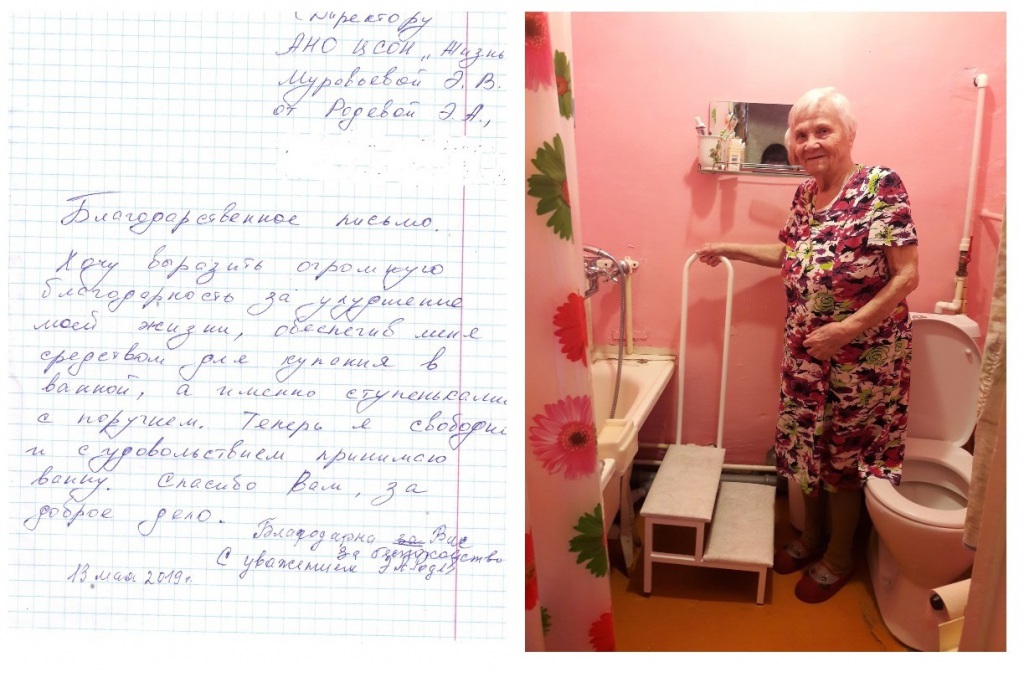 Директору
АНО ЦСОН „Жизнь
Муравьевой Э.В.
от Радевой Э.А.,
Благодарственное письмо.
Хочу выразить огромную
благодарность за улудшение
моей жизни, обеспечив меня
средством для купания в
ванной, а именно ступеньками
с поручнем. Теперь я свободно
и с удовольствием принимаю
ванну. Спасибо Вам, за
доброе дело.
Благодарна за Вас
за
С уважением
13 мая 2019г.